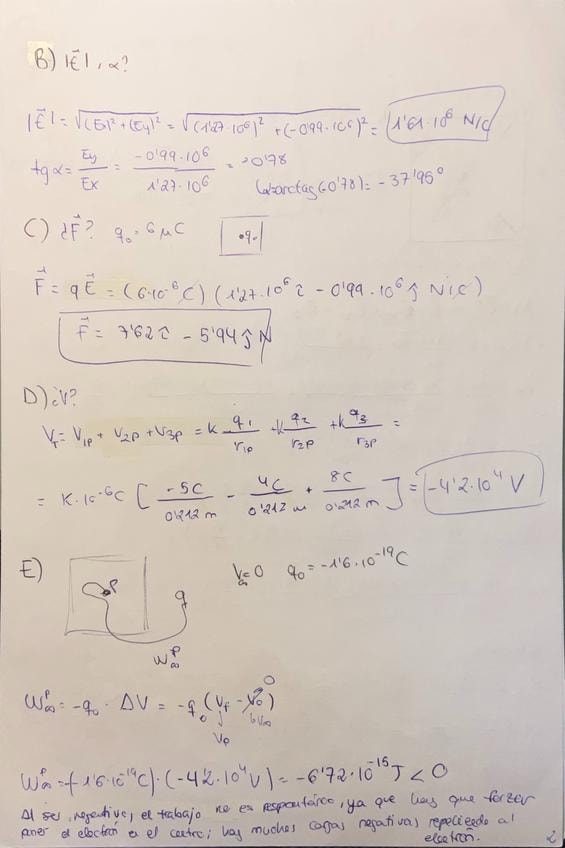 B) |E⃗|, α?
|E⃗| = √(Ex)² + (Ey)² = √(1'27·10⁶)² + (-0'99·10⁶)² = 1'61·10⁶ N/C
tgα = Ey/Ex = -0'99·10⁶ / 1'27·10⁶ = -0'78
↳ arctag(-0'78) = -37'95°
C) ¿F⃗? q₀ = 6 μC
•q₀
F⃗ = qE⃗ = (6·10⁻⁶ C) (1'27·10⁶ î - 0'99·10⁶ ĵ N/C)
F⃗ = 7'62 î - 5'94 ĵ N
D) ¿V?
V_T = V₁p + V₂p + V₃p = k q₁/r₁p + k q₂/r₂p + k q₃/r₃p =
= K·10⁻⁶C [ -5C/0'212 m - 4C/0'212 m + 8C/0'212 m ] = -4'2·10⁴ V
E)
P
q
W∞ᴾ
V∞ = 0 q₀ = -1'6·10⁻¹⁹ C
W∞ᴾ = -q₀ · ΔV = -q₀ (Vf - V₀)
0
Vp
↳V∞
W∞ᴾ = -(-1'6·10⁻¹⁹C)·(-4'2·10⁴ V) = -6'72·10⁻¹⁵ J < 0
Al ser negativo, el trabajo no es espontáneo, ya que hay que forzar
poner el electrón en el centro; hay muchas cargas negativas repeliendo al
electrón.
2